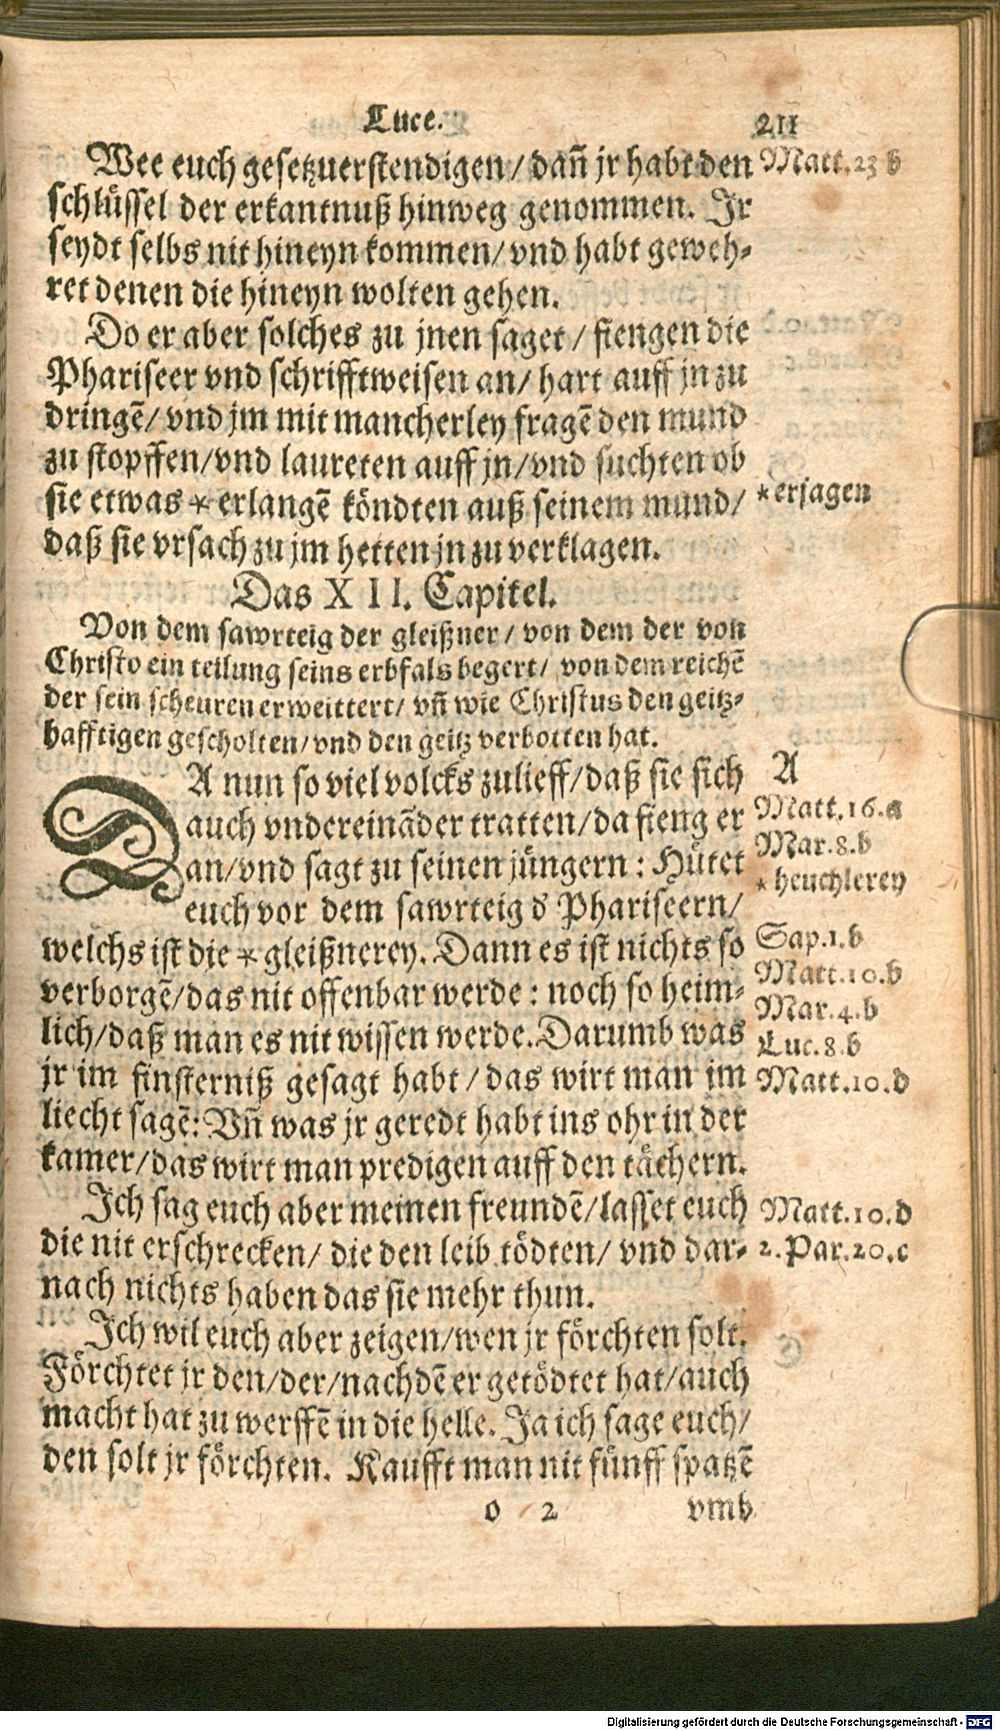 Luce. 211
Wee euch gesetzuerstendigen/ dañ jr habt den
Matt.23 b
schlüssel der erkantnuß hinweg genommen. Ir
seydt selbs nit hineyn kommen/ vnd habt geweh⸗
ret denen die hineyn wolten gehen.
Do er aber solches zu jnen saget/ fiengen die
Phariseer vnd schrifftweisen an/ hart auff jn zu
dringē/ vnd jm mit mancherley fragē den mund
zu stopffen/vnd laureten auff jn/vnd suchten ob
sie etwas * erlangē köndten auß seinem mund/
*erjagen
daß sie vrsach zu jm hetten jn zu verklagen.
Das XII. Capitel.
Von dem sawrteig der gleißner/ von dem der von
Christo ein teilung seins erbfals begert/ von dem reichē
der sein scheuren erweittert/ vñ wie Christus den geitz⸗
hafftigen gescholten/vnd den geitz verbotten hat.
DA nun so viel volcks zulieff/daß sie sich
A
auch vndereināder tratten/da fieng er
Matt.16.a
an/vnd sagt zu seinen jüngern: Hütet
Mar.8.b
* heuchlerey
euch vor dem sawrteig d' Phariseern/
welchs ist die * gleißnerey. Dann es ist nichts so
Sap.1.b
verborgē/das nit offenbar werde: noch so heim⸗
Matt.10.b
Mar.4.b
lich/daß man es nit wissen werde. Darumb was
Luc.8.b
jr im finsterniß gesagt habt/ das wirt man im
Matt.10.d
liecht sagē: Vñ was jr geredt habt ins ohr in der
kamer/das wirt man predigen auff den tächern.
Ich sag euch aber meinen freundē/lasset euch
Matt.10.d
die nit erschrecken/ die den leib tödten/ vnd dar⸗
2.Par.20.c
nach nichts haben das sie mehr thun.
Ich wil euch aber zeigen/wen jr förchten solt.
Förchtet jr den/der/nachdē er getödtet hat/auch
macht hat zu werffē in die helle. Ja ich sage euch/
den solt jr förchten. Kaufft man nit fünff spatzē
o 2 vmb
Digitalisierung gefördert durch die Deutsche Forschungsgemeinschaft - DFG